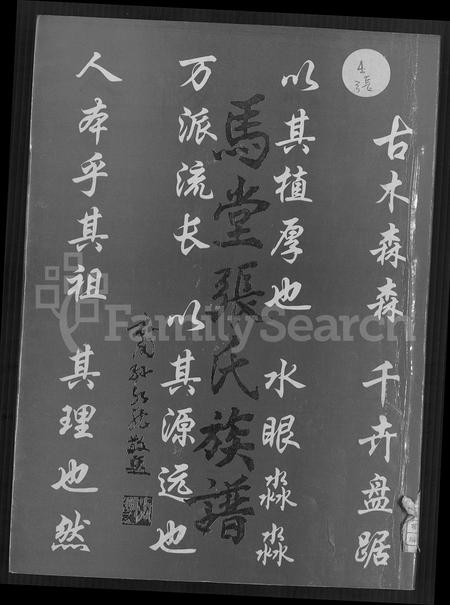 古木森森 千卉盘踞
以其植厚也 水眼淼淼
万派流长 以其源远也
人本乎其祖 其理也然
馬堂張氏族譜
敬题
4
張
FamilySearch